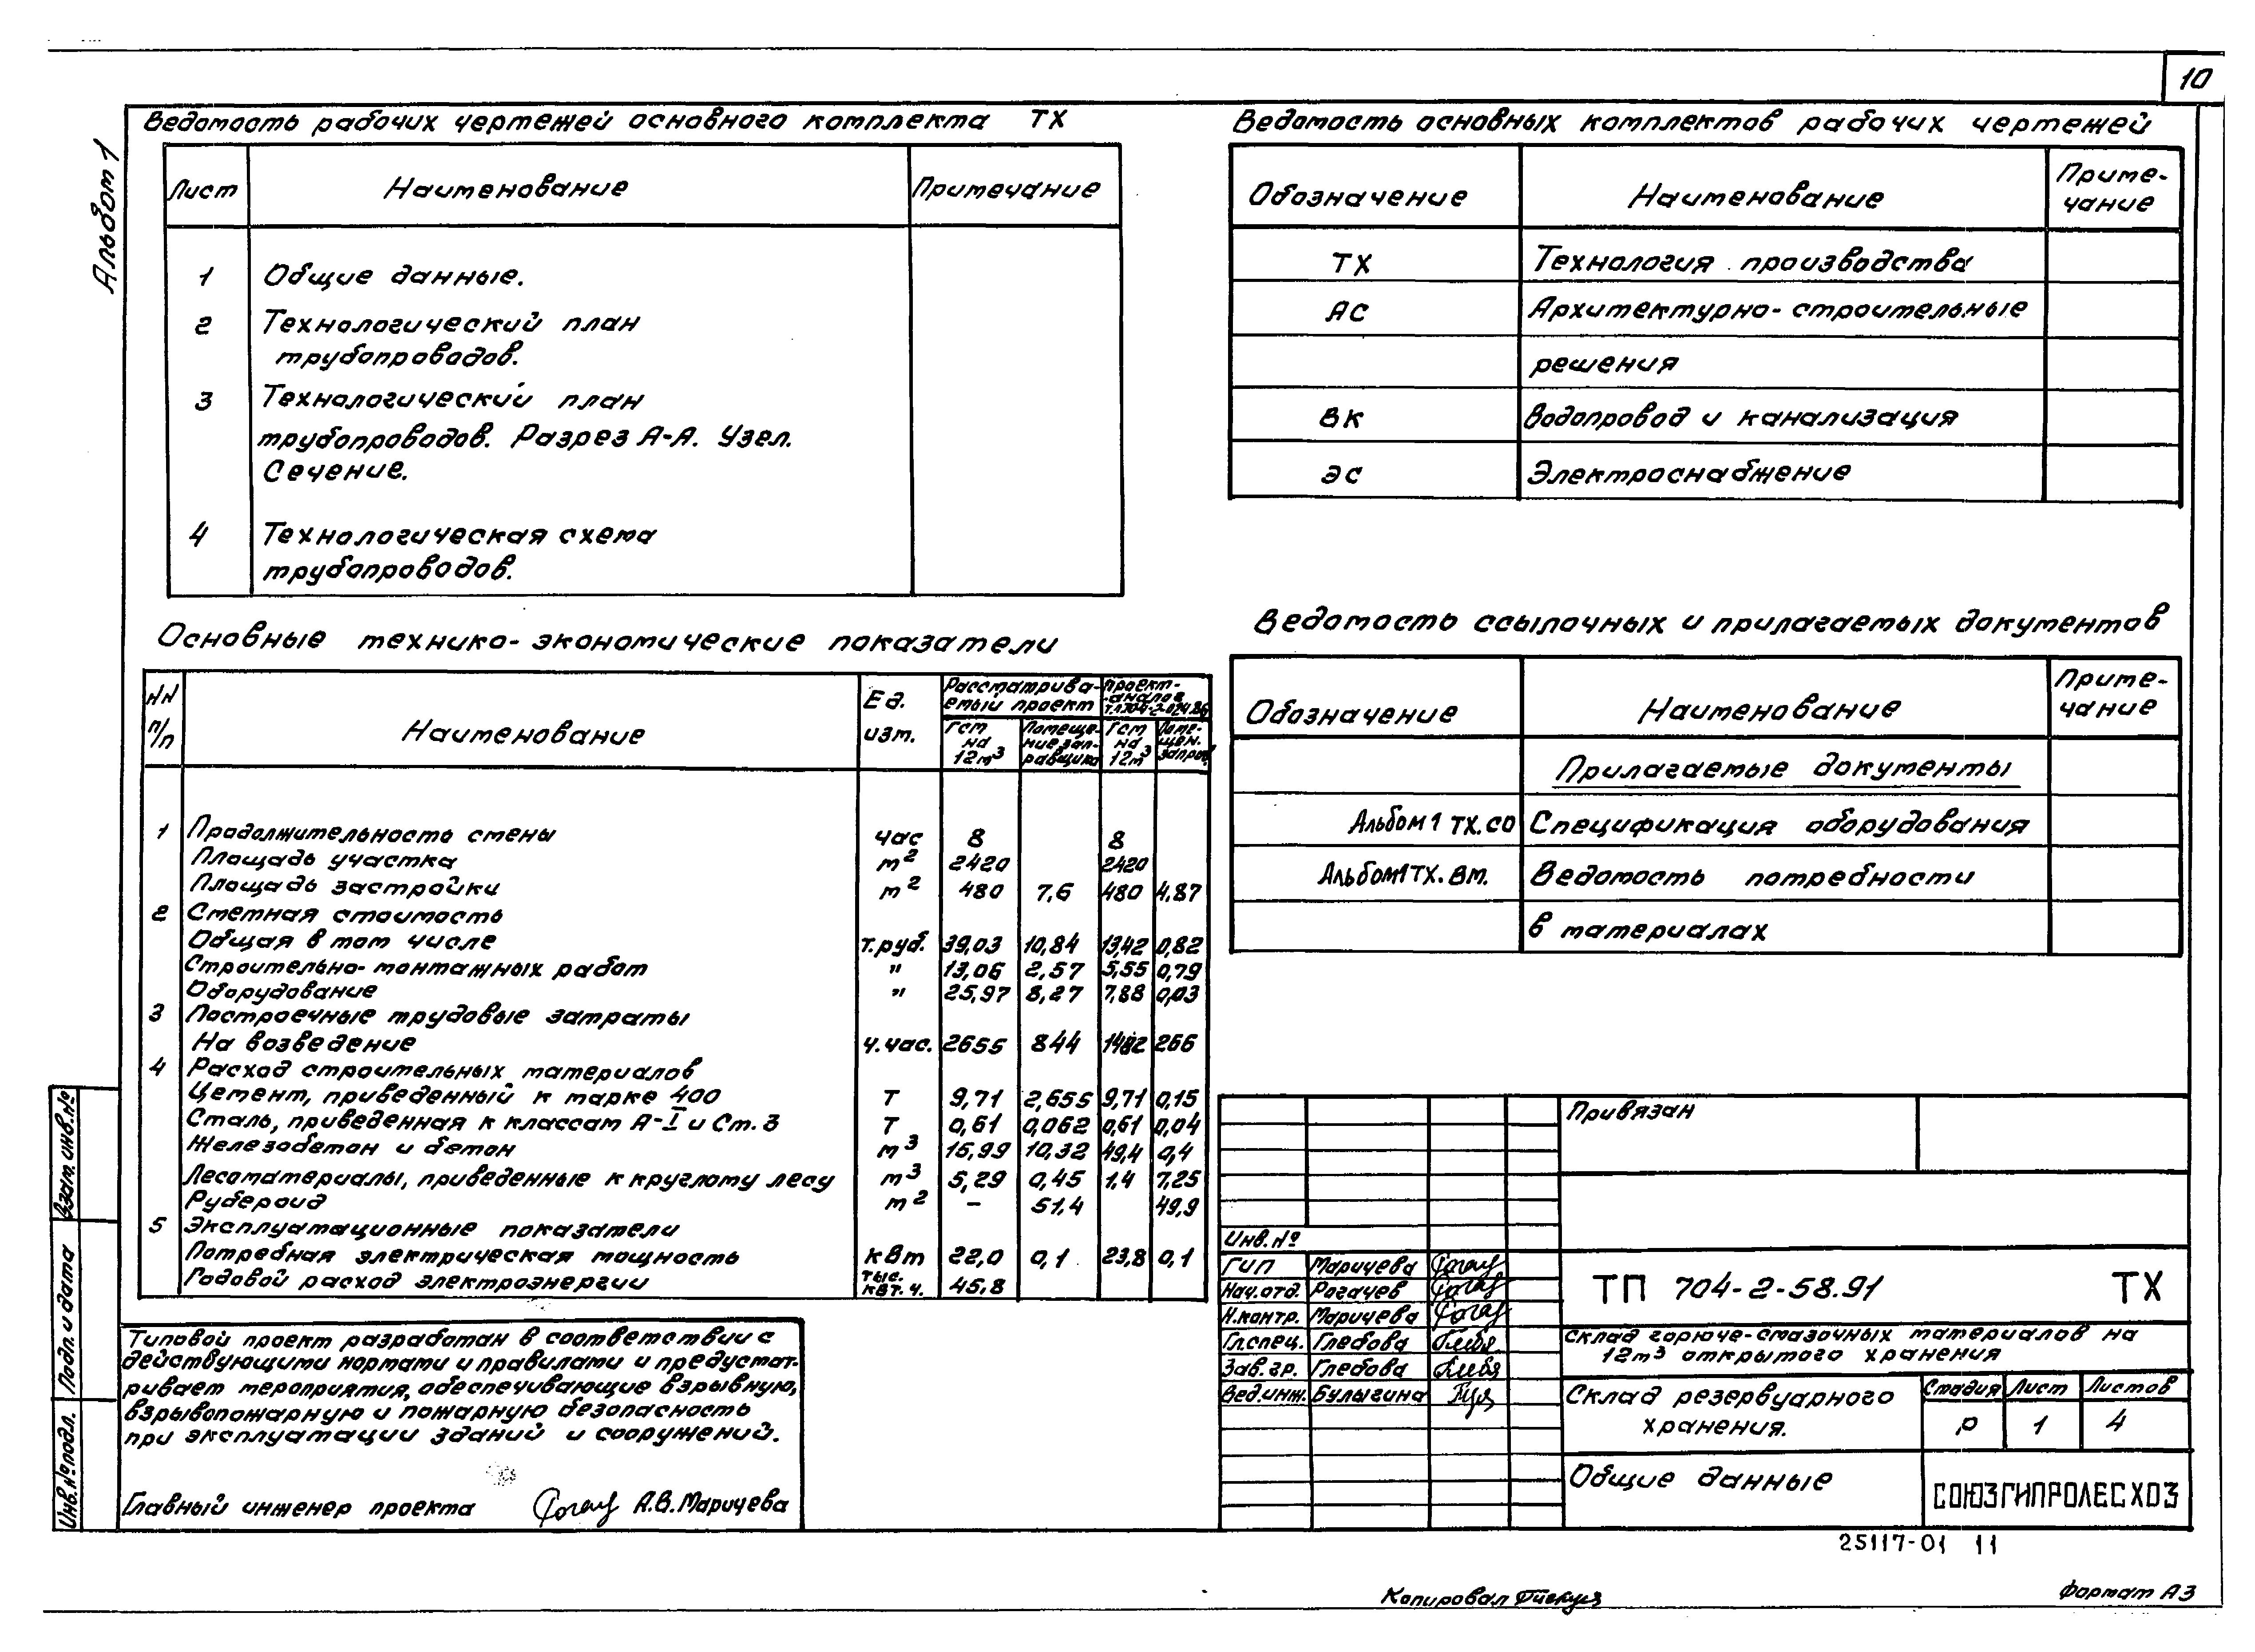 10
Альбом 1
Ведомость рабочих чертежей основного комплекта ТХ
Лист Наименование Примечание
1 Общие данные.
2 Технологический план
трубопроводов.
3 Технологический план
трубопроводов. Разрез А-А. Узел.
Сечение.
4 Технологическая схема
трубопроводов.
Ведомость основных комплектов рабочих чертежей
Обозначение Наименование Приме-
чание
ТХ Технология производства
АС Архитектурно-строительные
решения
ВК Водопровод и канализация
ЭС Электроснабжение
Основные технико-экономические показатели
НН
п/п
Наименование
Ед.
изм.
Рассматрива-
емый проект
проект-
аналог
ГСМ
на
12м³
Помеще-
ние зап-
равщика
ГСМ
на
12м³
Поме-
щен.
1 Продолжительность смены час 8 8
Площадь участка м² 2420 2420
Площадь застройки м² 480 7,6 480 4,87
2 Сметная стоимость
Общая в том числе т.руб. 39,03 10,84 13,42 0,82
Строительно-монтажных работ " 13,06 2,57 5,55 0,79
Оборудование " 25,97 8,27 7,88 0,03
3 Построечные трудовые затраты
На возведение ч.час. 2655 844 1482 266
4 Расход строительных материалов
Цемент, приведенный к марке 400 Т 9,71 2,655 9,71 0,15
Сталь, приведенная к классам А-I и Ст.3 Т 0,61 0,062 0,61 0,04
Железобетон и бетон м³ 16,99 10,32 49,4 0,4
Лесоматериалы, приведенные к круглому лесу м³ 5,29 0,45 1,4 7,25
Рубероид м² – 51,4 49,9
5 Эксплуатационные показатели
Потребная электрическая мощность кВт 22,0 0,1 23,8 0,1
Годовой расход электроэнергии тыс. квт.ч. 45,8
Ведомость ссылочных и прилагаемых документов
Обозначение Наименование Приме-
чание
Прилагаемые документы
Альбом 1 ТХ.СО Спецификация оборудования
Альбом 1 ТХ.ВМ. Ведомость потребности
в материалах
Типовой проект разработан в соответствии с
действующими нормами и правилами и предусмат-
ривает мероприятия, обеспечивающие взрывную,
взрывопожарную и пожарную безопасность
при эксплуатации зданий и сооружений.
Главный инженер проекта А.В.Маричева
Взам. инв.№
Подп. и дата
Инв.№ подл.
Привязан
Инв.№
ГИП Маричева
Нач.отд. Рогачев
Н.контр. Маричева
Гл.спец. Глебова
Зав.гр. Глебова
Вед.инж. Булыгина
ТП 704-2-58.91 ТХ
Склад горюче-смазочных материалов на
12м³ открытого хранения
Склад резервуарного
хранения.
Стадия Лист Листов
Р 1 4
Общие данные
СОЮЗГИПРОЛЕСХОЗ
25117-01 11
Копировал
Формат А3